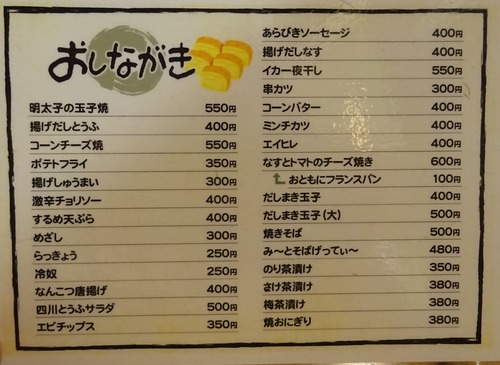 おしながき
明太子の玉子焼 550円
揚げだしとうふ 400円
コーンチーズ焼 550円
ポテトフライ 350円
揚げしゅうまい 300円
激辛チョリソー 400円
するめ天ぷら 400円
めざし 300円
らっきょう 250円
冷奴 250円
なんこつ唐揚げ 400円
四川とうふサラダ 500円
エビチップス 350円
あらびきソーセージ 400円
揚げだしなす 400円
イカ一夜干し 550円
串カツ 300円
コーンバター 400円
ミンチカツ 400円
エイヒレ 400円
なすとトマトのチーズ焼き 600円
おともにフランスパン 100円
だしまき玉子 400円
だしまき玉子(大) 500円
焼きそば 500円
み〜とそばげってぃ〜 480円
のり茶漬け 350円
さけ茶漬け 380円
梅茶漬け 380円
焼おにぎり 380円